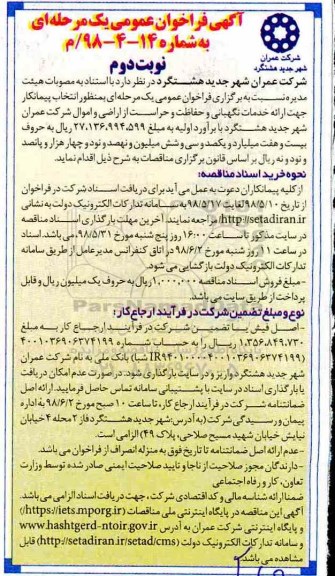 آگهی فراخوان عمومی یک مرحله‌ای
به شماره ۱۴-۴-۹۸/م
نوبت دوم
شرکت عمران
شهر جدید هشتگرد
شرکت عمران شهر جدید هشتگرد در نظر دارد با استناد به مصوبات هیئت
مدیره نسبت به برگزاری فراخوان عمومی یک مرحله‌ای بمنظور انتخاب پیمانکار
جهت ارائه خدمات نگهبانی و حفاظت و حراست از اراضی و اموال شرکت عمران
شهر جدید هشتگرد با برآورد اولیه به مبلغ ۲۷،۱۳۶،۹۹۴،۵۹۹ ریال به حروف
بیست و هفت میلیارد و یکصد و سی و شش میلیون و نهصد و نود و چهار هزار و پانصد
و نود و نه ریال بر اساس قانون برگزاری مناقصات به شرح ذیل اقدام نماید.
نحوه خرید اسناد مناقصه:
از کلیه پیمانکاران دعوت به عمل می آید برای دریافت اسناد شرکت در فراخوان
از تاریخ ۹۸/۵/۱۰ لغایت ۹۸/۵/۱۷ به سامانه تدارکات الکترونیک دولت به نشانی
http://setadiran.ir مراجعه نمایند. آخرین مهلت بارگذاری اسناد مناقصه
در سایت مذکور تا ساعت ۱۶:۰۰ روز پنج شنبه مورخ ۹۸/۵/۳۱ می باشد. اسناد
در ساعت ۱۱ روز شنبه مورخ ۹۸/۶/۲ در اتاق کنفرانس مدیرعامل از طریق سامانه
تدارکات الکترونیک دولت بازگشایی می شود.
-مبلغ فروش اسناد مناقصه ۱،۰۰۰،۰۰۰ ریال به حروف یک میلیون ریال و قابل
پرداخت از طریق سایت می باشد.
نوع و مبلغ تضمین شرکت در فرآیند ارجاع کار:
-اصل فیش یا تضمین شرکت در فرآیند ارجاع کار به مبلغ
۱،۳۵۶،۸۴۹،۷۳۰ ریال را به حساب شماره ۴۰۰۱۰۳۶۹۰۶۳۷۴۱۹۹
شبا) بانک ملی به نام شرکت عمران
شهر جدید هشتگرد واریز و در سایت بارگذاری شود. در صورت عدم امکان دریافت
یا بارگذاری اسناد در سایت با پشتیبانی سامانه تماس حاصل فرمایید. ارائه اصل
ضمانتنامه شرکت در فرآیند ارجاع کار، تا ساعت ۱۰ صبح مورخ ۹۸/۶/۲ به اداره
پیمان و رسیدگی شرکت (به آدرس: شهر جدید هشتگرد فاز ۲ محله ۴ خیابان
نیایش خیابان شهید مسیح صلاحی، پلاک ۴۹) الزامی است.
-عدم ارائه اصل ضمانتنامه تا تاریخ فوق به منزله انصراف از فراخوان می باشد.
-دارندگان مجوز صلاحیت از ناجا و تایید صلاحیت ایمنی صادر شده توسط وزارت
تعاون، کار و رفاه اجتماعی
ضمنا ارائه شناسه ملی و کد اقتصادی شرکت، جهت دریافت اسناد الزامی می باشد.
آگهی این مناقصه در پایگاه اینترنتی ملی مناقصات (https://iets.mporg.ir)
و پایگاه اینترنتی شرکت عمران به آدرس www.hashtgerd-ntoir.gov.ir
و سامانه تدارکات الکترونیک دولت (http://setadiran.ir/setad/cms) قابل
مشاهده می باشد.